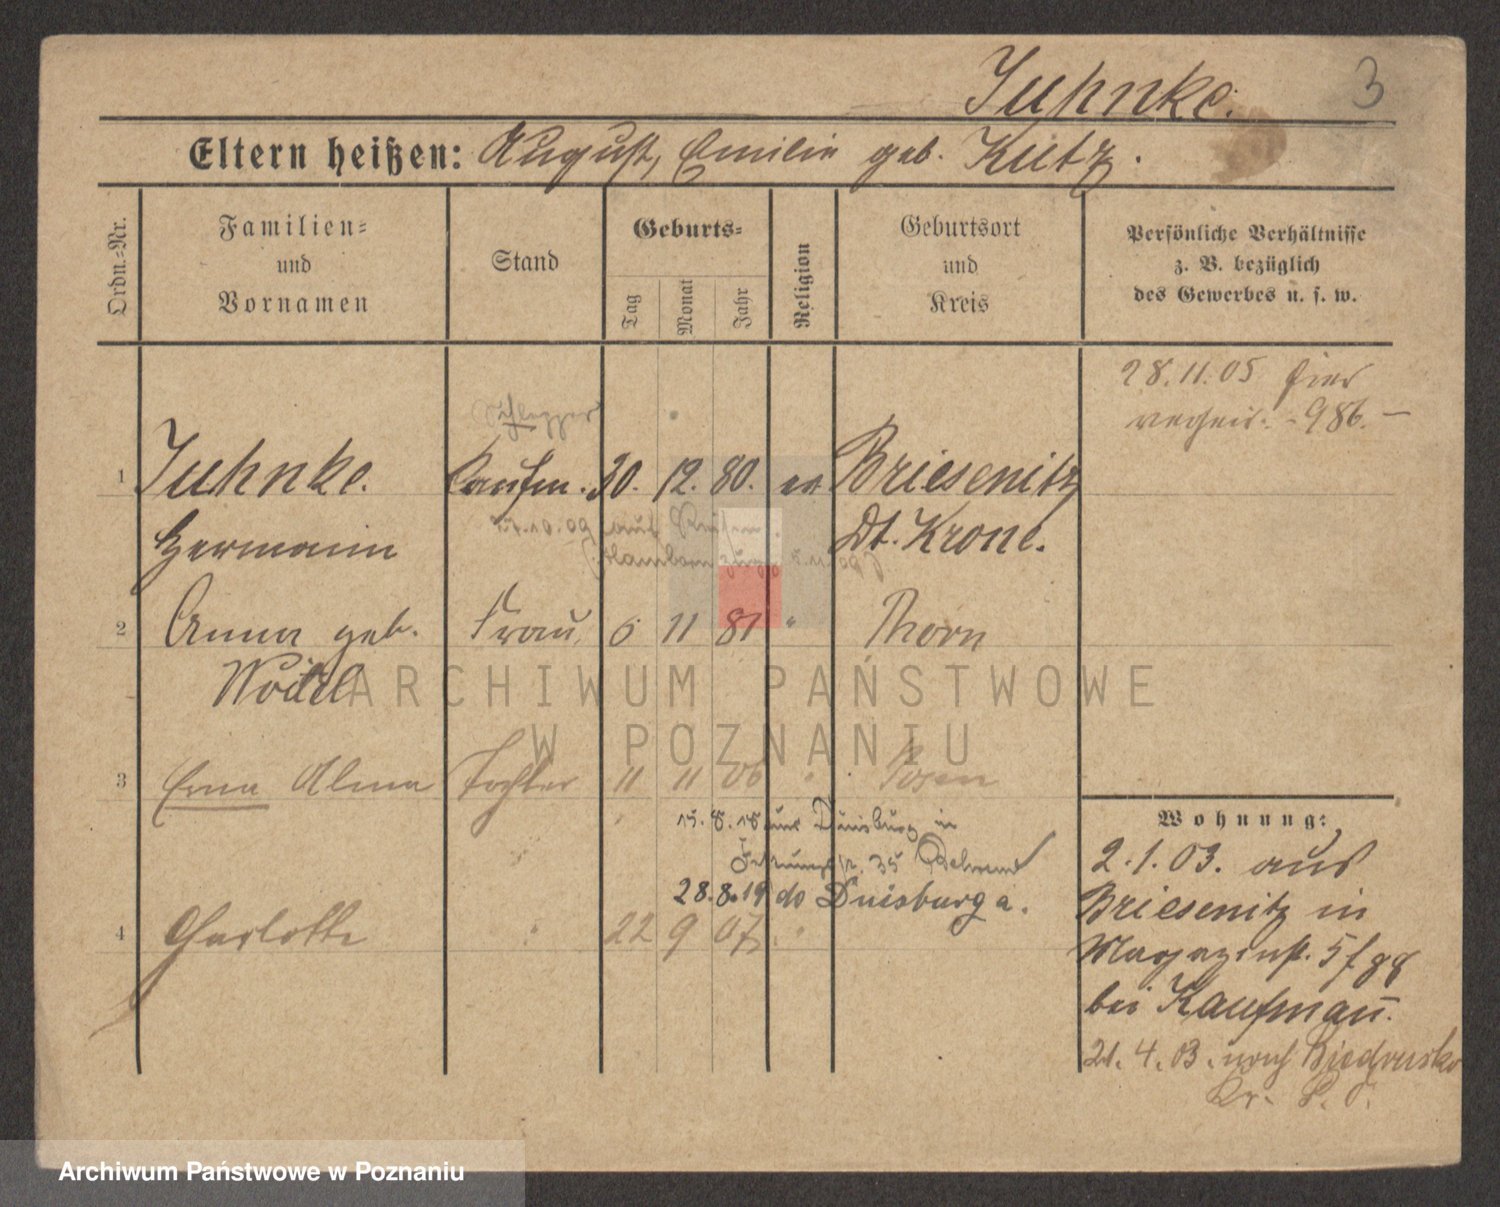 Juhnke. 3
Eltern heißen: August, Emilie geb. Kutz.
Ordn.-Nr.
Familien-
und
Vornamen
Stand
Geburts-
Tag
Monat
Jahr
Religion
Geburtsort
und
Kreis
Persönliche Verhältnisse
z. B. bezüglich
des Gewerbes u. s. w.
28.11.05 hier
986.-
1 Juhnke. Kaufm. 30. 12. 80. ev Briesenitz
Hermann Dt. Krone.
27.10.09 auf Reisen.
2 Anna geb. Frau 6 11 81 " Thorn
Wodtl
ARCHIWUM PAŃSTWOWE
W POZNANIU
3 Erna Alma Tochter 11 11 06 " Posen
15.8.18 aus Duisburg in
35
28.8.19 do Duisburg a.
4 Charlotte " 22 9 07. "
Wohnung:
2.1.03. aus
Briesenitz in
Magazinst. 5
bei Kaufmann.
21.4.03. nach Biedrusko
Kr. P. O.
Archiwum Państwowe w Poznaniu